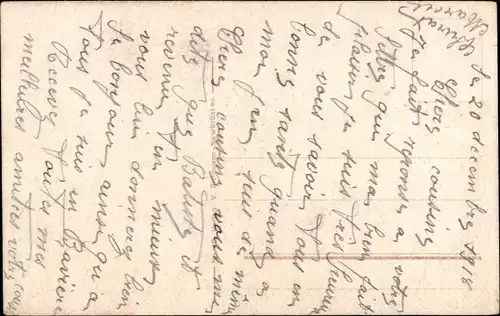 Le 20 decembre 1918
Chers cousins
Je fait réponse a votre
lettre qui ma bien fait
plaisir je suis tres heureux
de vous savoir tous en
bonne santé quand a
moi jen suis de même
Chers cousins vous me
dite que Batiste et
revenu et en mieux
vous lui donnere bien
le bonjour ainsi qu a
tous je suis en Baviere
Recevez tous mes
meilleures amitiés votre cousin
Marcel